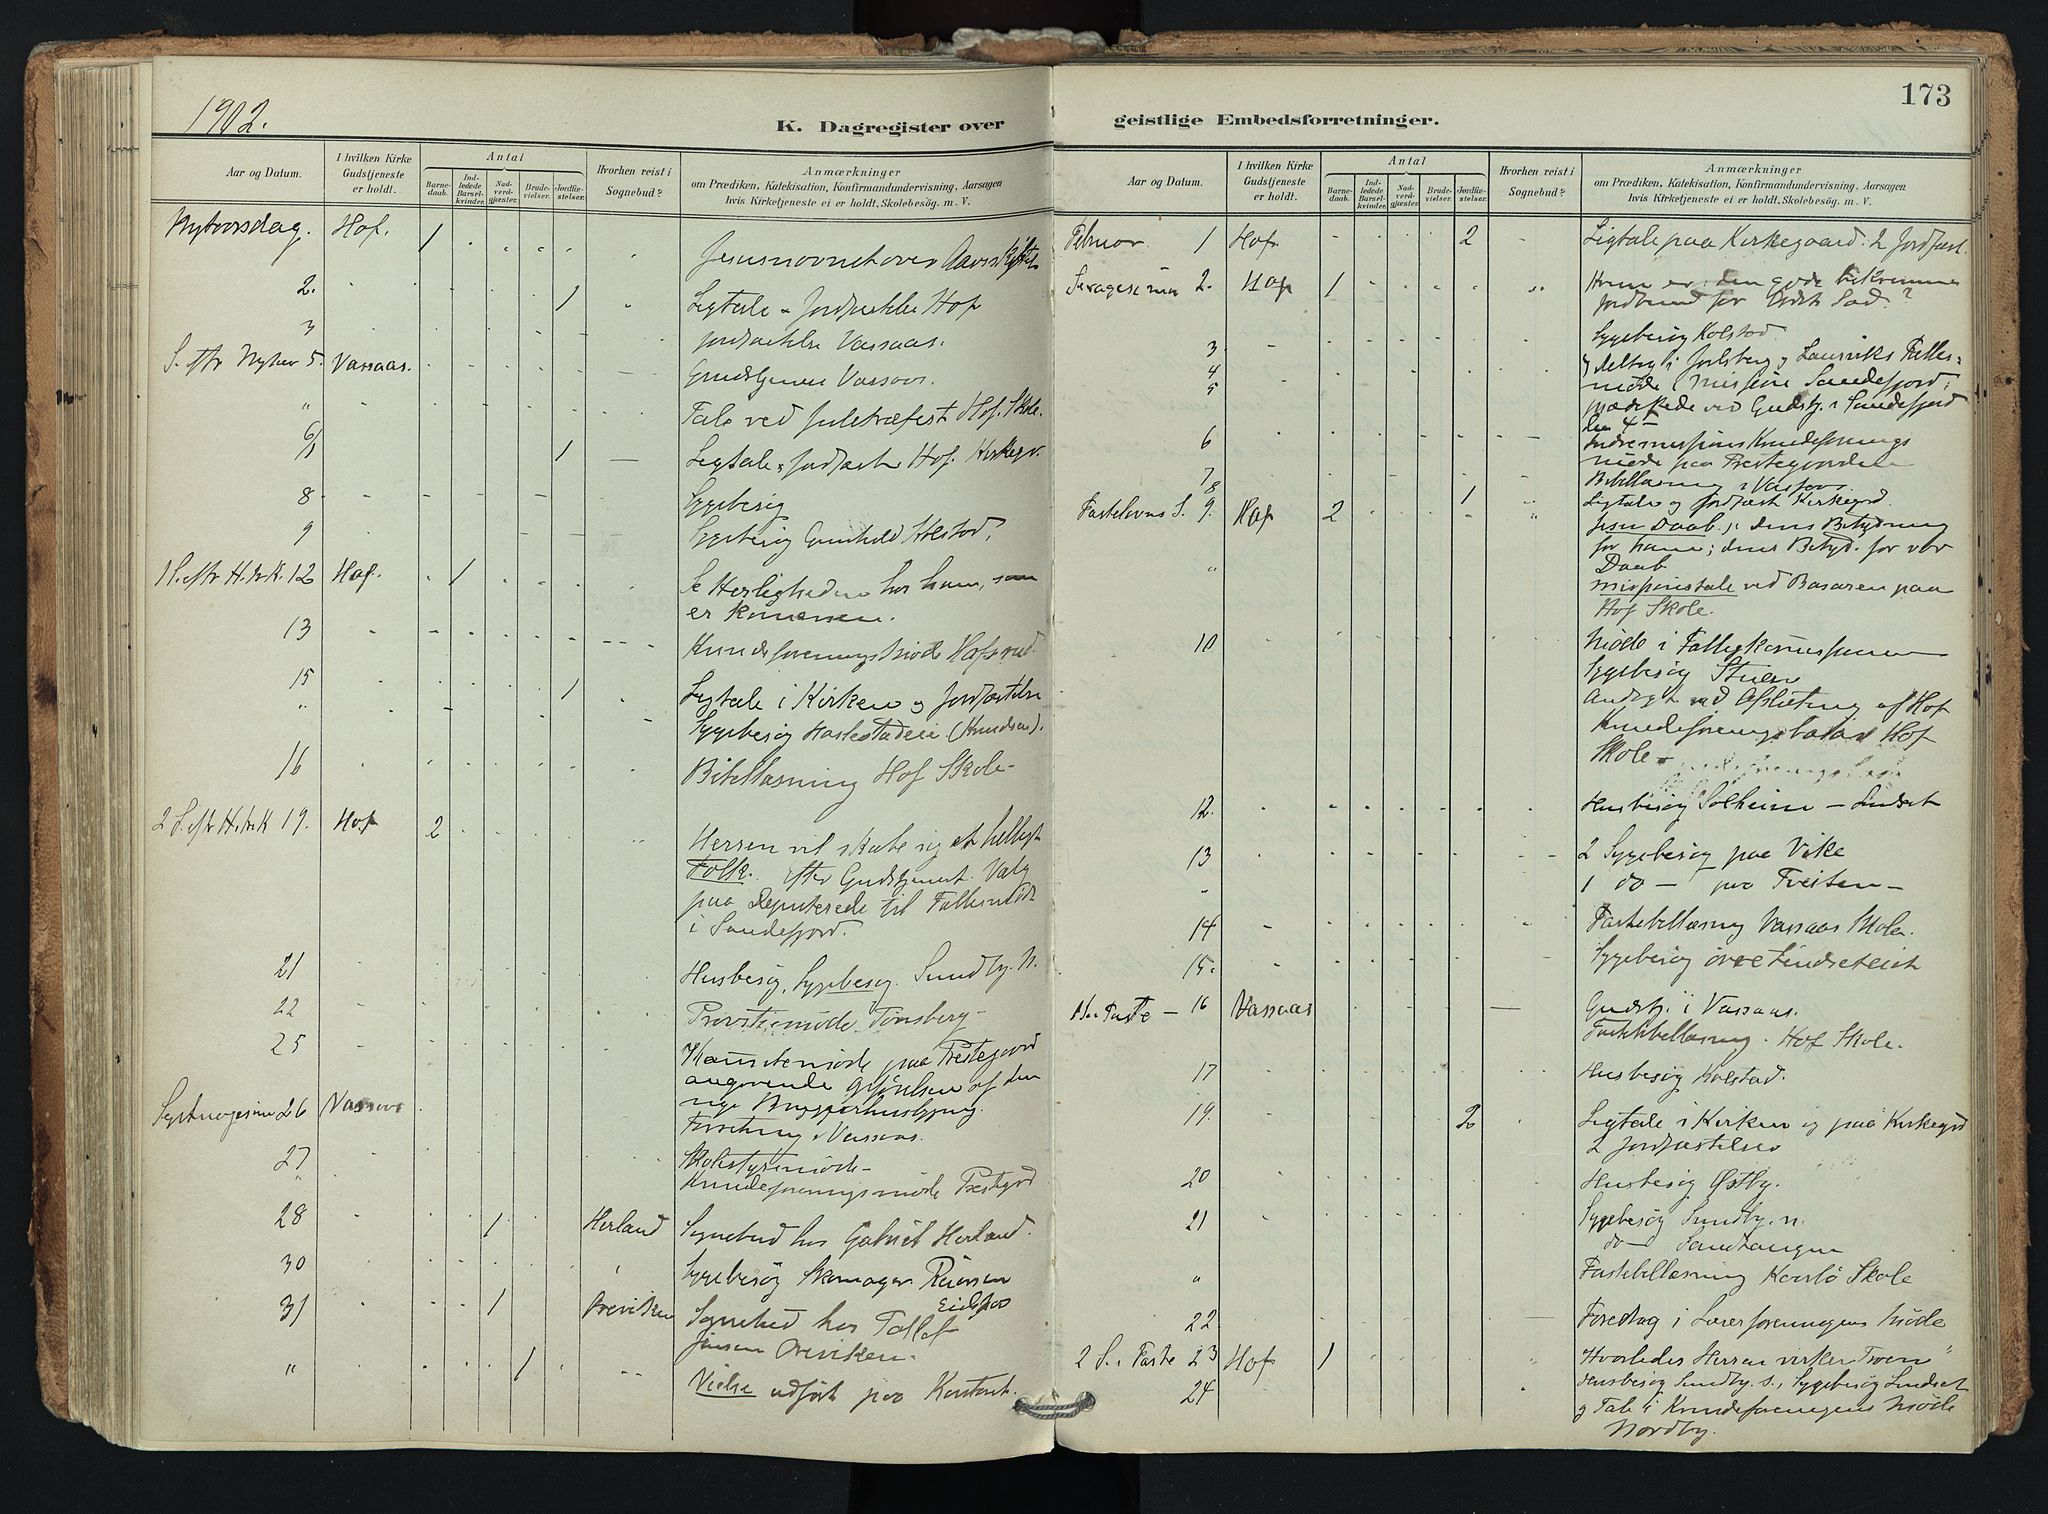 1902.
K. Dagregister over
Aar og Datum.
I hvilken Kirke
Gudstjeneste
er holdt.
Antal
Barne-
daab.
Ind-
ledede
Barsel-
kvinder.
Nad-
verd-
gjæster.
Brude-
vielser.
Jordfæ-
stelser.
Hvorhen reist i
Sognebud?
Anmærkninger
om Prædiken, Katekisation, Konfirmandundervisning, Aarsagen
hvis Kirketjeneste ei er holdt, Skolebesøg. m. V.
Nytaarsdag. Hof. 1
2. 1 Ligtale Hof
3 Vassaas.
S. eftr Nytaar 5. Vassaas. Vassaas.
" Tale ved Juletræfest Hof. Skole.
6/1 1 Ligtale Hof. Kirkegr.
8 Sygebesøg
9 Sygebesøg Gunhild Kolstad.
1 S. eftr H.tr.K. 12 Hof. 1 Se Herligheden hos ham, som
er kommen.
13 Kvindeforeningsmøde
15 1 Ligtale i Kirken og Jordfæstelse
" Sygebesøg (Knudsen).
16 Bibellæsning Hof Skole-
2 S. eftr H.tr.K 19. Hof 2
Herren vil skabe sig et helligt
Folk. Efter Gudstjenest. Valg
paa Deputerede til Fællesmøde
i Sandefjord.
21 Husbesøg, Sygebesøg. Sundby. N.
22 Provstemøde Tønsberg-
25 paa Prestegaard
angaaende af den
26 Vassaas
i Vassaas.
27 Skolestyremøde-
" Kvindeforeningsmøde Prestegrd
28 1 Herland Sognebud hos Gabriel Herland.
30 Sygebesøg Skomager
31 1 Sognebud hos
" 1 Vielse udført paa Kontoret.
173
geistlige Embedsforretninger.
Aar og Datum.
I hvilken Kirke
Gudstjeneste
er holdt.
Antal
Barne-
daab.
Ind-
ledede
Barsel-
kvinder.
Nad-
verd-
gjæster.
Brude-
vielser.
Jordfæ-
stelser.
Hvorhen reist i
Sognebud?
Anmærkninger
om Prædiken, Katekisation, Konfirmandundervisning, Aarsagen
hvis Kirketjeneste ei er holdt, Skolebesøg. m. V.
Februar 1 Hof 2 Ligtale paa Kirkegaard. 2 Jordfæst.
Sexagesima 2. Hof 1 Hvem er den gode
Jordbund for Guds Sæd?
3 Sygebesøg Kolstad
4 deltog i Jarlsberg og Laurviks Fælles-
5 møde i Mission Sandefjord;
prædikede ved Gudstj. i Sandefjord
den 4
6 Indremissions Kvindeforenings
møde paa Prestegaarden
7 Bibellæsning i Vassaas.
8 1 Ligtale og Jordfæst Kirkegrd.
Fastelavns S. 9. Hof 2 Jesu Daab; dens Betydning
for ham; dens Betyd. for vor
Daab
" missionstale ved Basaren paa
Hof Skole.
10 Møde i
Sygebesøg
Andagt ved Afslutning af Hof
Kvindeforenings Hof
Skole
12. Husbesøg Solheim - Lindset
13 2 Sygebesøg paa Vike
" 1 do - paa Tveiten-
14 Fastebibellæsning Vassaas Skole.
15. Sygebesøg øvre
1 S. i Faste - 16 Vassaas Gudstj. i Vassaas.
Fastebibellæsning. Hof Skole.
17 Husbesøg Kolstad.
19. 2 Ligtale i Kirken og paa Kirkegrd
2 Jordfæstelser
20 Husbesøg Østby.
21 Sygebesøg Sundby. n.
do
" Fastebibellæsning Skole
22 Foredrag i Lærerforeningens Møde
2 S. i Faste 23 Hof 1 "Hvorledes Herren virker Troen"
24 Husbesøg Sundby. s., Sygebesøg Lindset
og Tale i Kvindeforeningens Møde
Nordby.